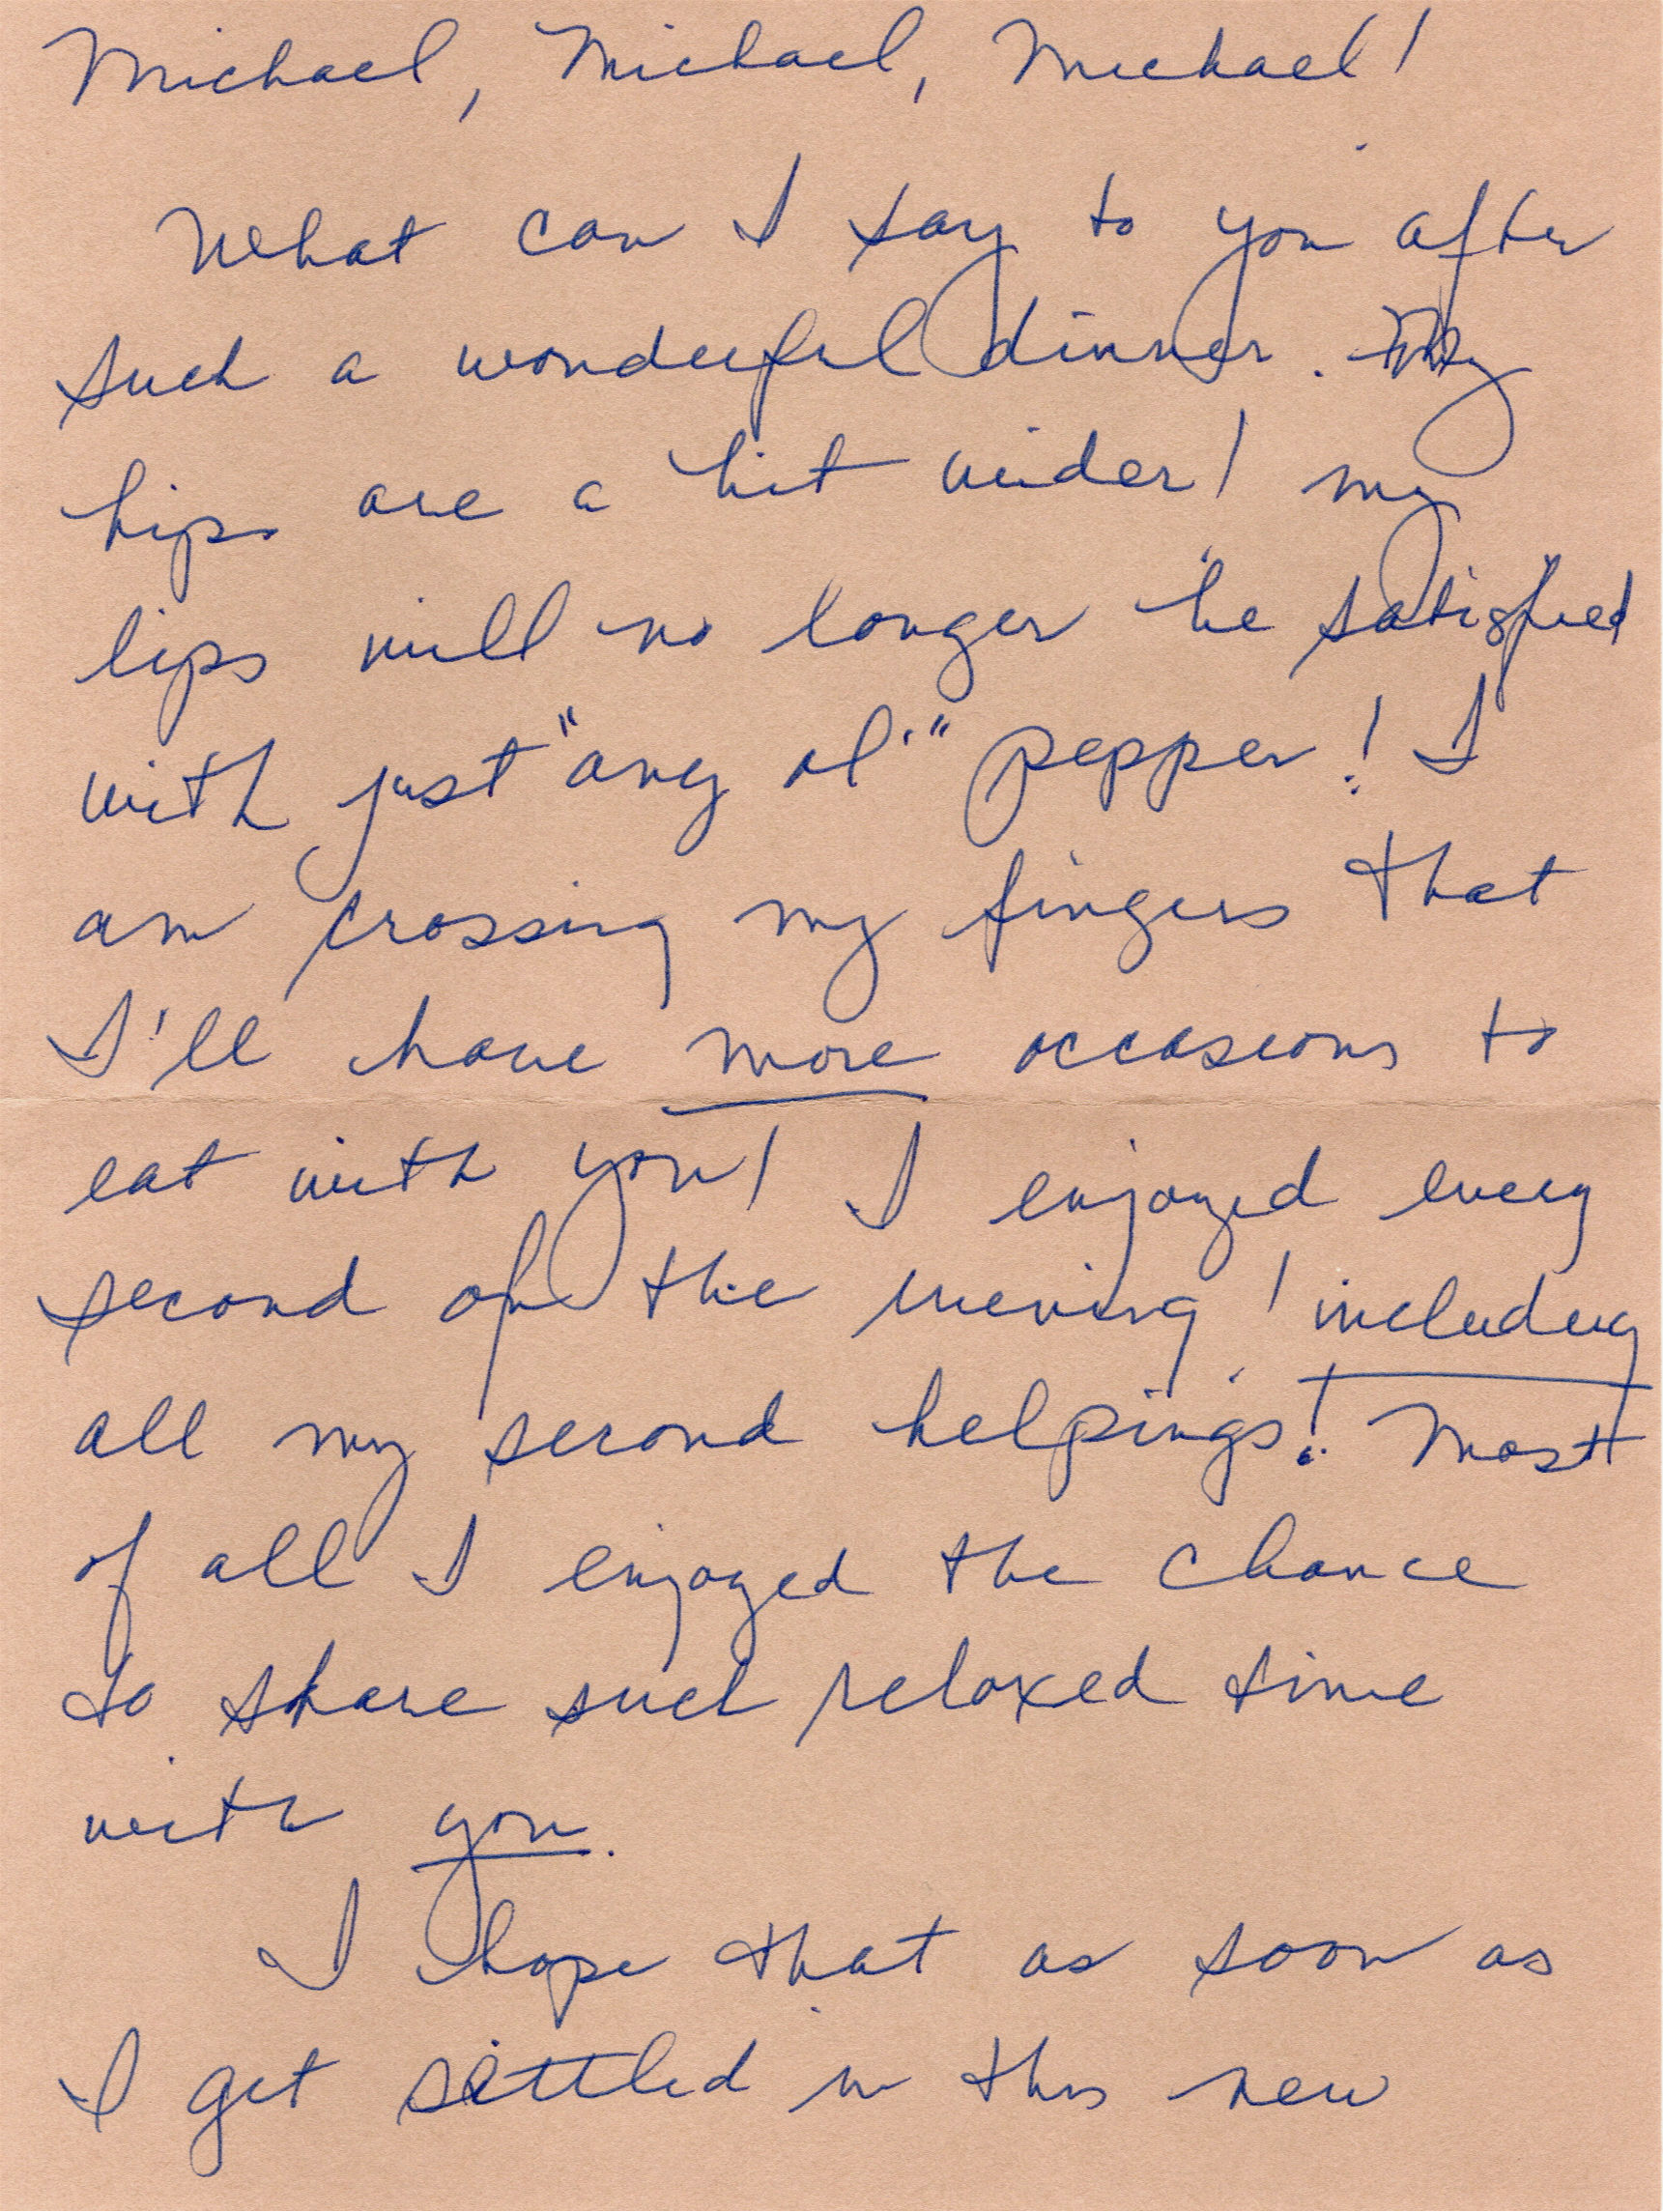 Michael, Michael, Michael!
What can I say to you after
such a wonderful dinner. My
hips are a bit wider! My
lips will no longer be satisfied
with just "any ol'" pepper! I
am crossing my fingers that
I'll have more occasions to
eat with you! I enjoyed every
second of the evening! including
all my second helpings! Most
of all I enjoyed the chance
to share such relaxed time
with you.
I hope that as soon as
I get settled in this new